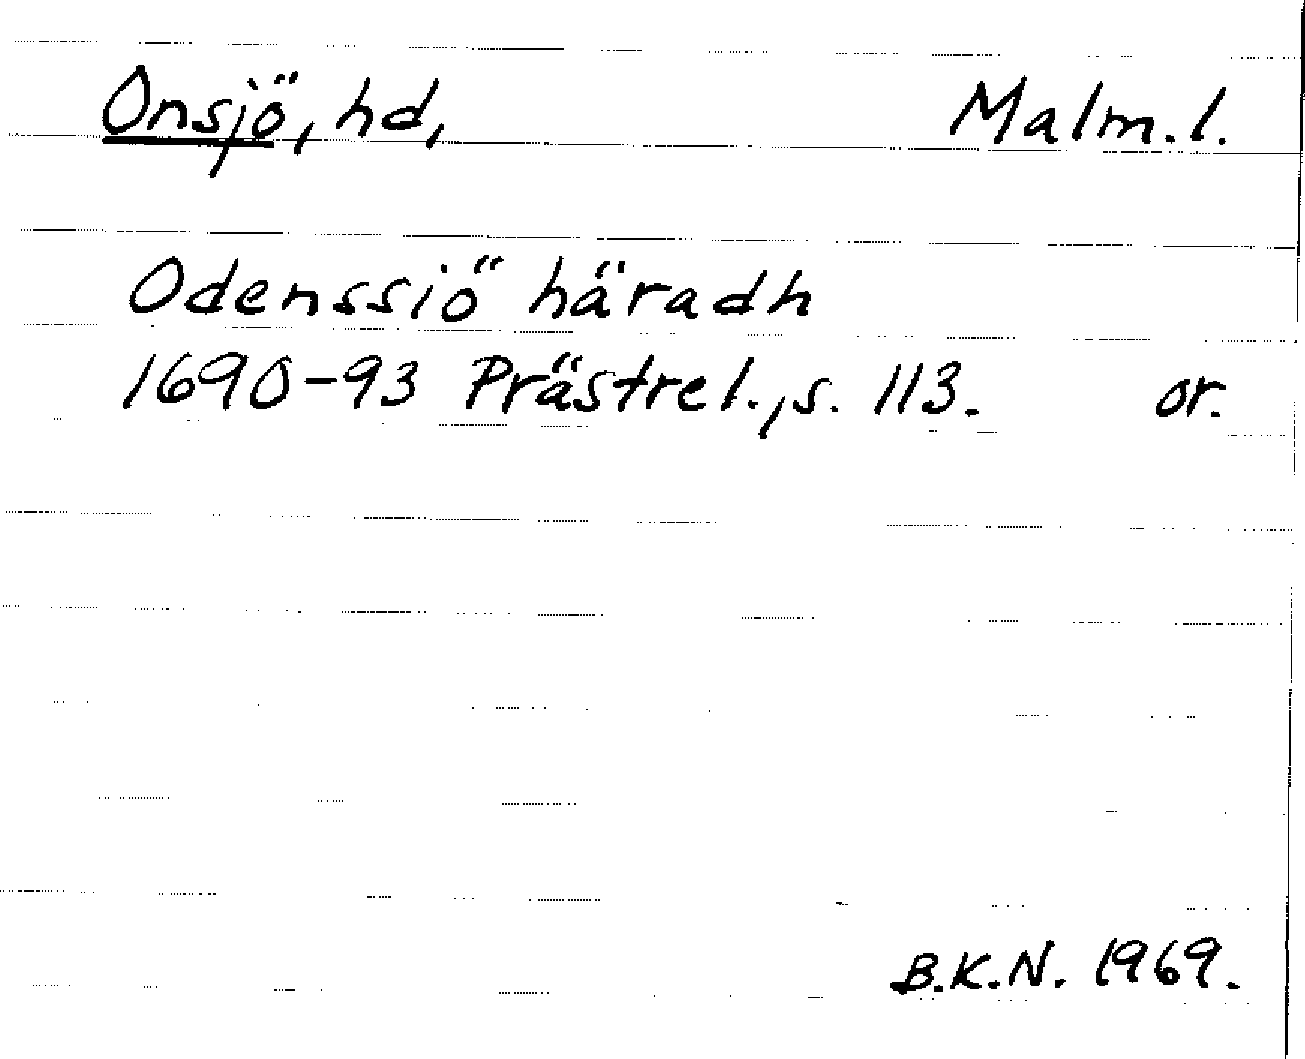 Onsjö, hd, Malm.l.
Odenssiö häradh
1690-93 Prästrel., s. 113. or.
B.K.N. 1969.